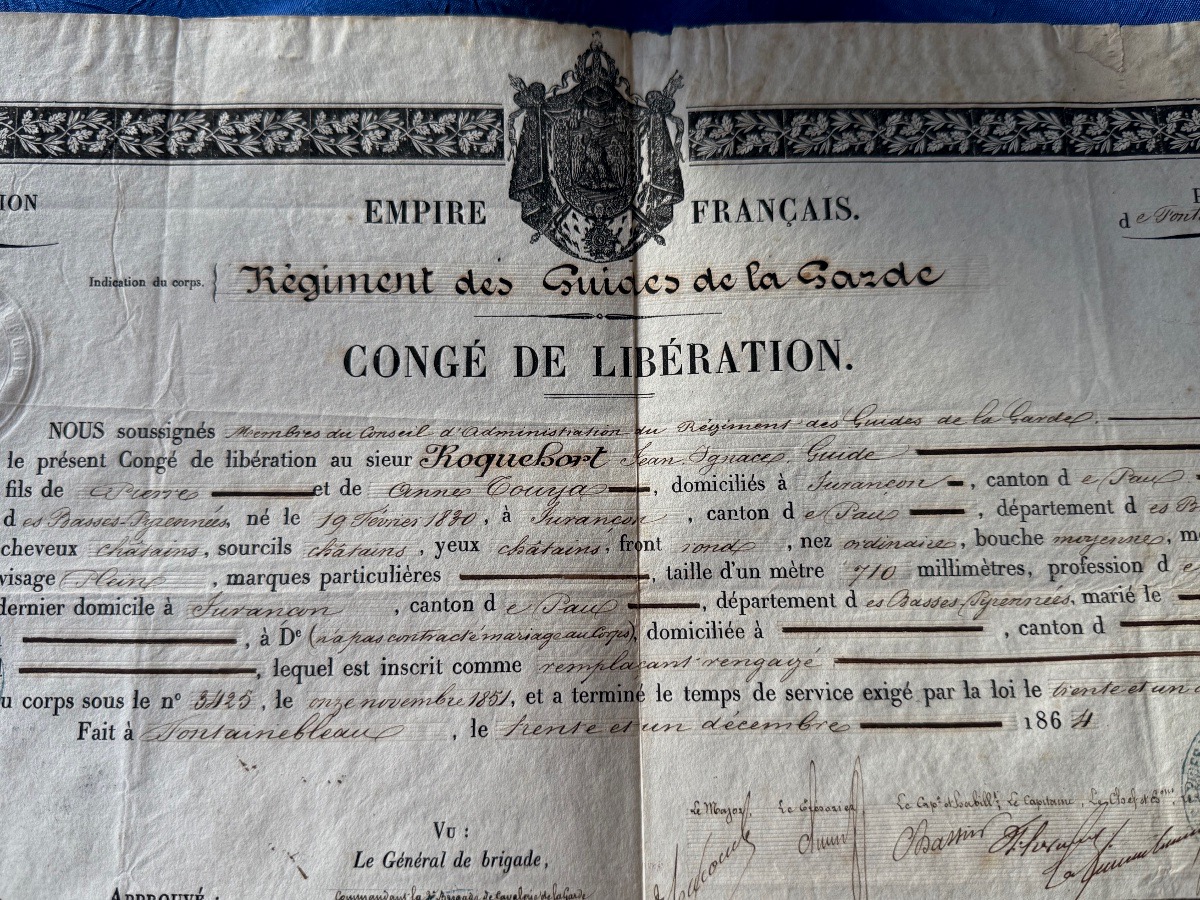 ION
EMPIRE FRANÇAIS.
d e
Indication du corps. { Régiment des Guides de la Garde
CONGÉ DE LIBÉRATION.
NOUS soussignés Membres du Conseil d'Administration du Régiment des Guides de la Garde.
le présent Congé de libération au sieur Roquehort Jean Ignace, Guide
fils de Pierre et de Anne Touya, domiciliés à Jurançon, canton d e Pau
d es Basses-Pyrennées, né le 19 Février 1830, à Jurançon, canton d e Pau, département d es B
cheveux châtains, sourcils châtains, yeux châtains, front rond, nez ordinaire, bouche moyenne, m
visage Plein, marques particulières, taille d'un mètre 710 millimètres, profession d e
dernier domicile à Juranan, canton d e Pau, département d es Basses-Pyrennées, marié le
, à De (n'a pas contracté mariage au Corps), domiciliée à , canton d
, lequel est inscrit comme remplaçant rengagé
u corps sous le nº 3425, le onze novembre 1851, et a terminé le temps de service exigé par la loi le trente et un
Fait à Fontainebleau, le trente et un décembre 1864
Le Major, Le Trésorier Le Cape d'habillt, Le Capitaine,
Vu :
Le Général de brigade,
APPROUVÉ : Commandant la Brigade de Cavalerie de la Garde